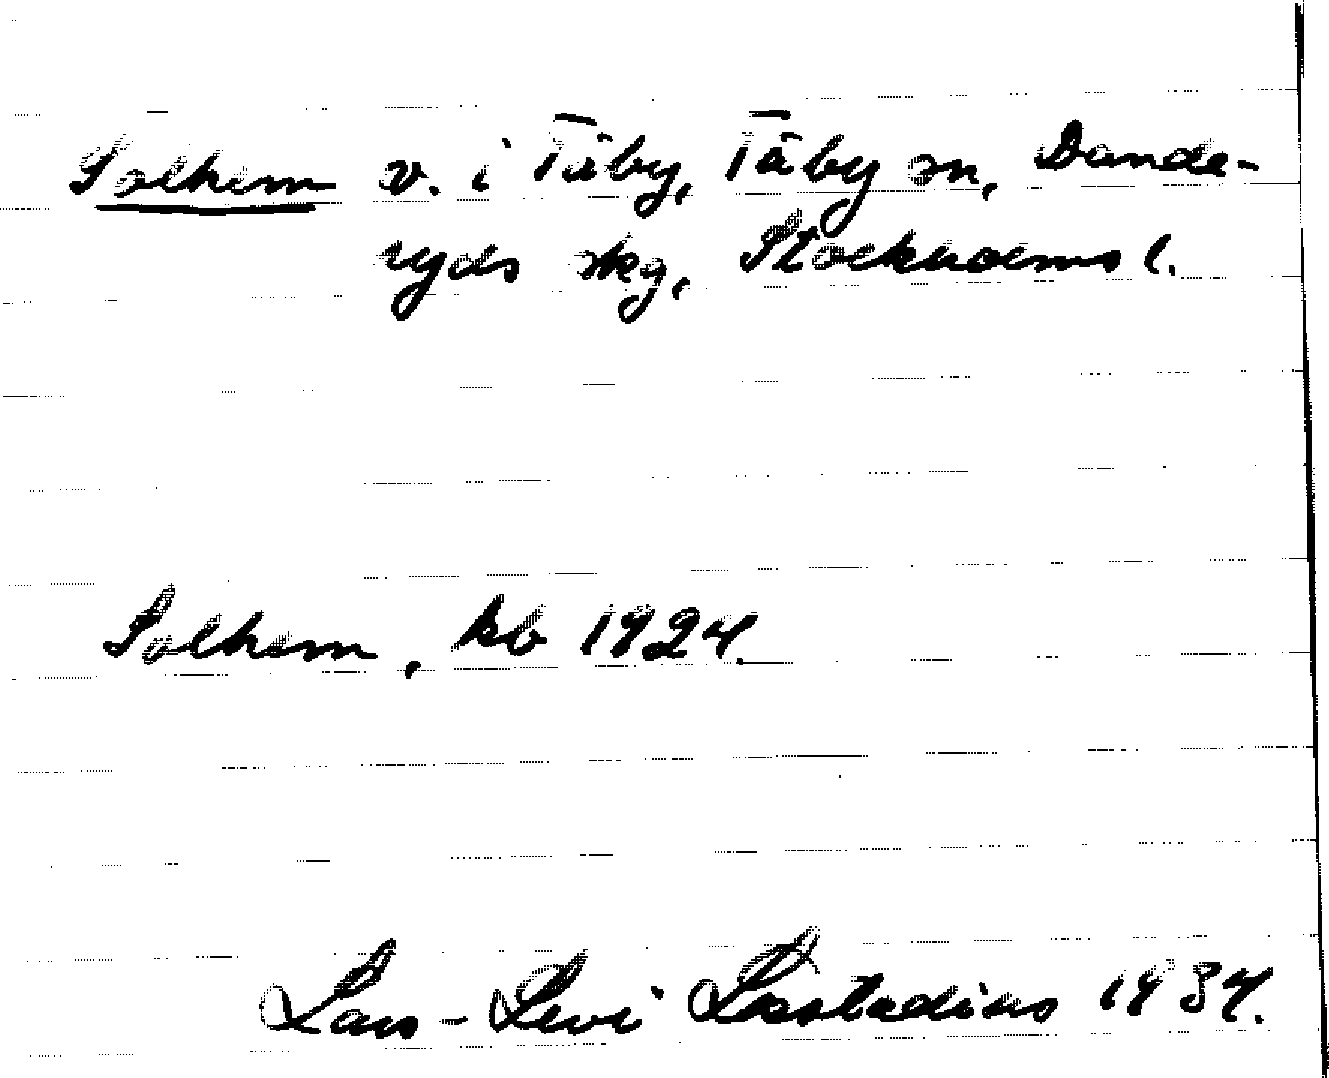 Solhem v. i Täby, Täby sn, Dande-
ryds skg, Stockholms l.
Solhem, kb 1924.
Lars-Levi Læstadius 1934.